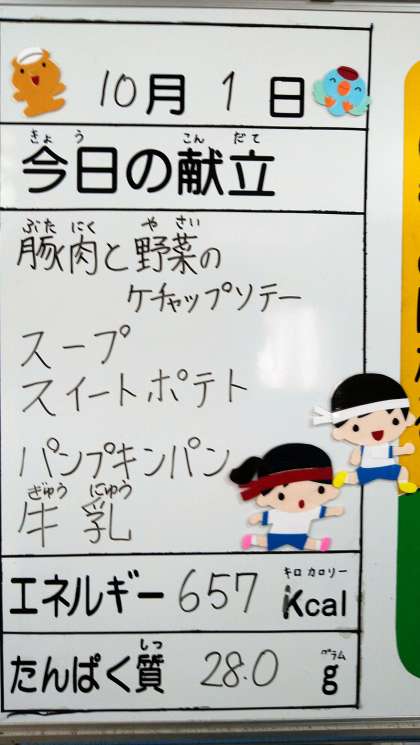 10月1日
きょう こん だて
今日の献立
ぶた にく や さい
豚肉と野菜の
ケチャップソテー
スープ
スイートポテト
パンプキンパン
ぎゅう にゅう
牛乳
キロ カロリー
エネルギー 657 Kcal
しつ グラム
たんぱく質 28.0 g